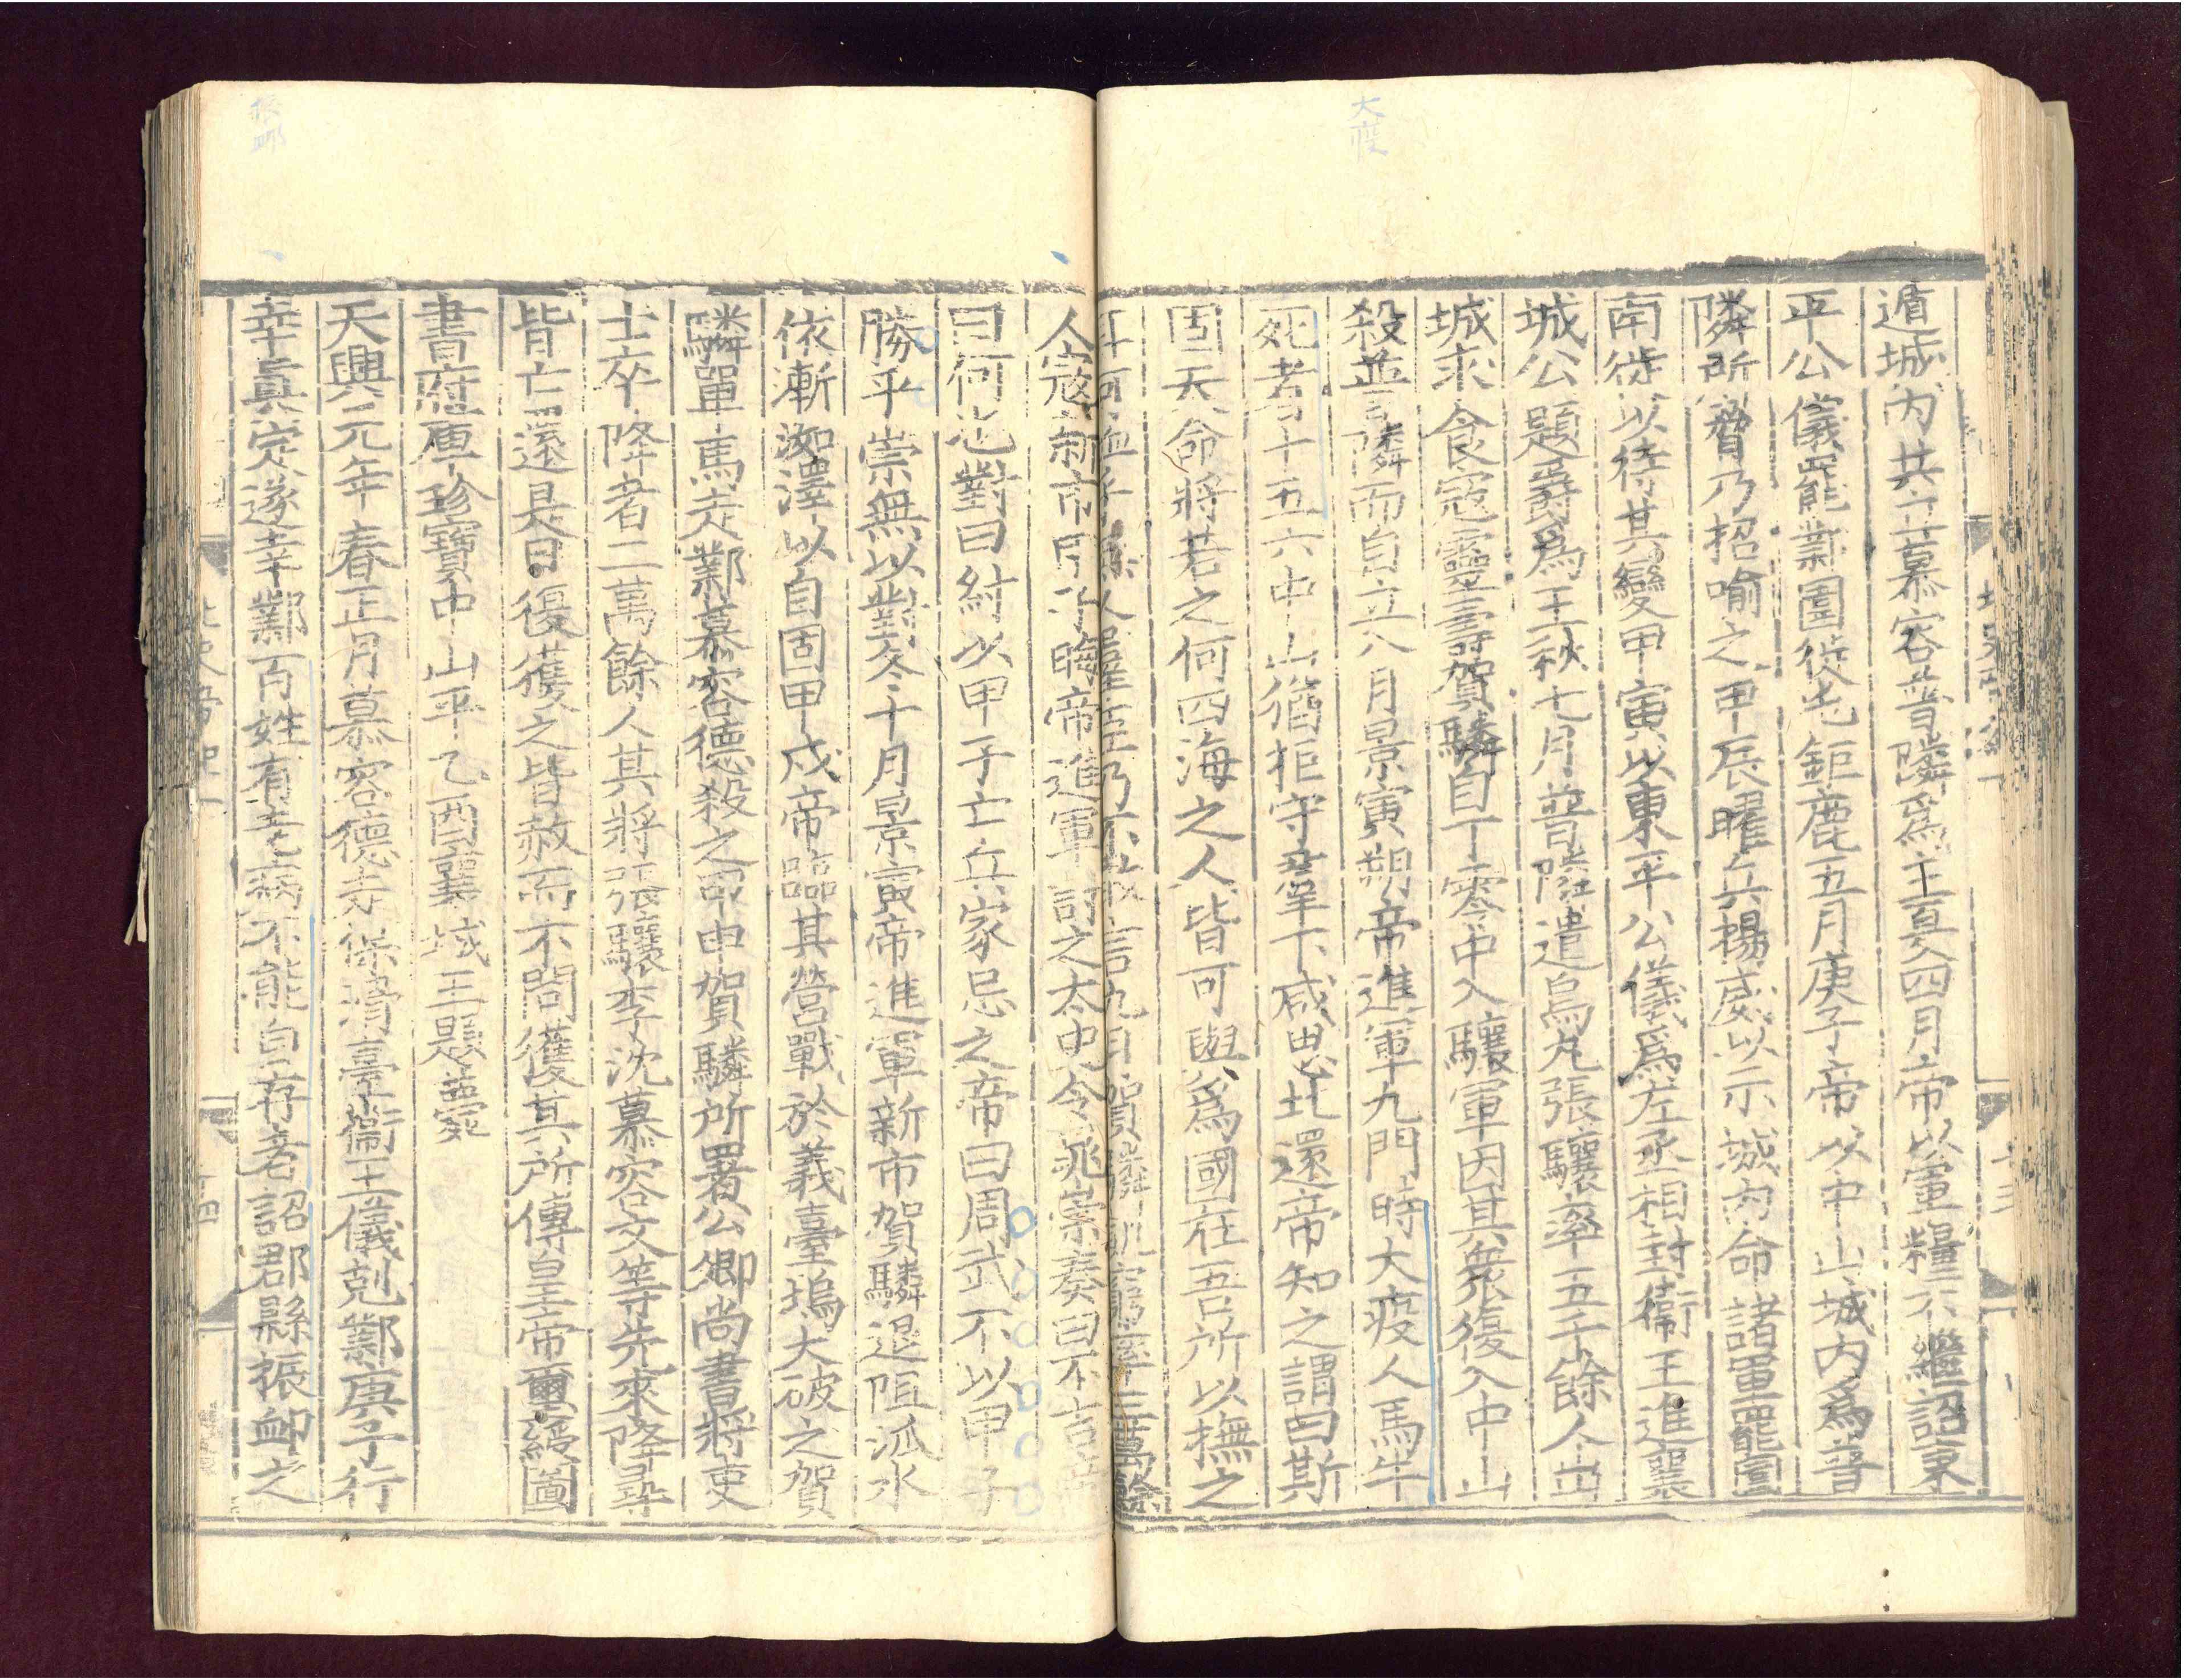 大疫
遁城内共立慕容普隣爲主夏四月帝以軍糧不繼詔東
平公儀罷業圍徙屯鉅鹿五月庚子帝以中山城内爲普
隣所脅乃招喻之甲辰曜兵揚威以示城内命諸軍罷圍
南徙以待其變甲寅以東平公儀爲左丞相封衞王進襄
城公題爵爲王秋七月普隣遣烏丸張驤率五千餘人出
城求食寇靈壽賀驎自丁零中入驤軍因其衆復入中山
殺普隣而自立八月景寅朔帝進軍九門時大疫人馬牛
死者十五六中山猶拒守羣下咸思北還帝知之謂曰斯
固天命將若之何四海之人皆可與爲國在吾所以撫之
耳何恤乎無人羣臣乃不敢言九月賀驎飢窮率三萬餘
人寇新市甲子晦帝進軍討之太史令晁崇奏曰不吉帝
曰何也對曰紂以甲子亡兵家忌之帝曰周武不以甲子
勝乎崇無以對冬十月景寅帝進軍新市賀驎退阻泒水
依漸洳澤以自固甲戍帝臨其營戰於義臺塢大破之賀
驎單馬走鄴慕容德殺之甲申賀驎所署公卿尚書將吏
士卒降者二萬餘人其將張驤李沈慕容文等先來降尋
皆亡還是日復獲之皆赦而不問獲其所傳皇帝璽綬圖
書府庫珍寶中山平乙酉襄城王題薨
天興元年春正月慕容德走保滑臺衞王儀剋鄴庚子行
幸真定遂幸鄴百姓有老病不能自存者詔郡縣振卹之
十四
振卹